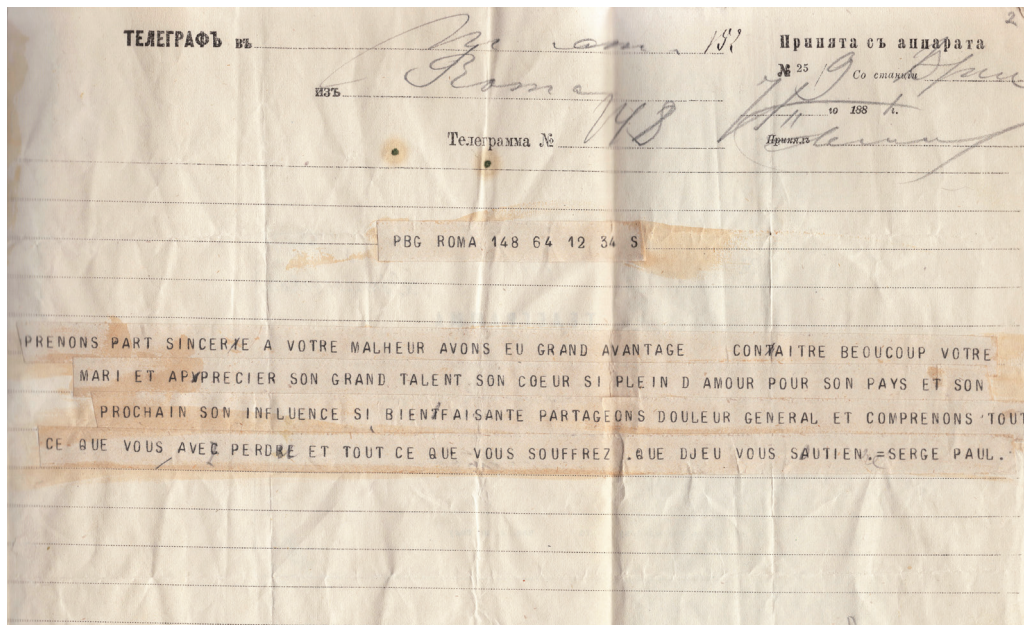 2
ТЕЛЕГРАФЪ въ 152
Принята съ аппарата
№ 25 9 Со станціи
изъ Roma
го 188 г.
Телеграмма № 148
Принялъ
PBG ROMA 148 64 12 34 S
PRENONS PART SINCERXE A VOTRE MALHEUR AVONS EU GRAND AVANTAGE CONXAITRE BEOUCOUP VOTRE
MARI ET APYPRECIER SON GRAND TALENT SON COEUR SI PLEIN D AMOUR POUR SON PAYS ET SON
PROCHAIN SON INFLUENCE SI BIENTFAISANTE PARTAGEONS DOULEUR GENERAL ET COMPRENONS TOUT
CE QUE VOUS AVEZ PERDRE ET TOUT CE QUE VOUS SOUFFREZ .QUE DJEU VOUS SAUTIEN.=SERGE PAUL.